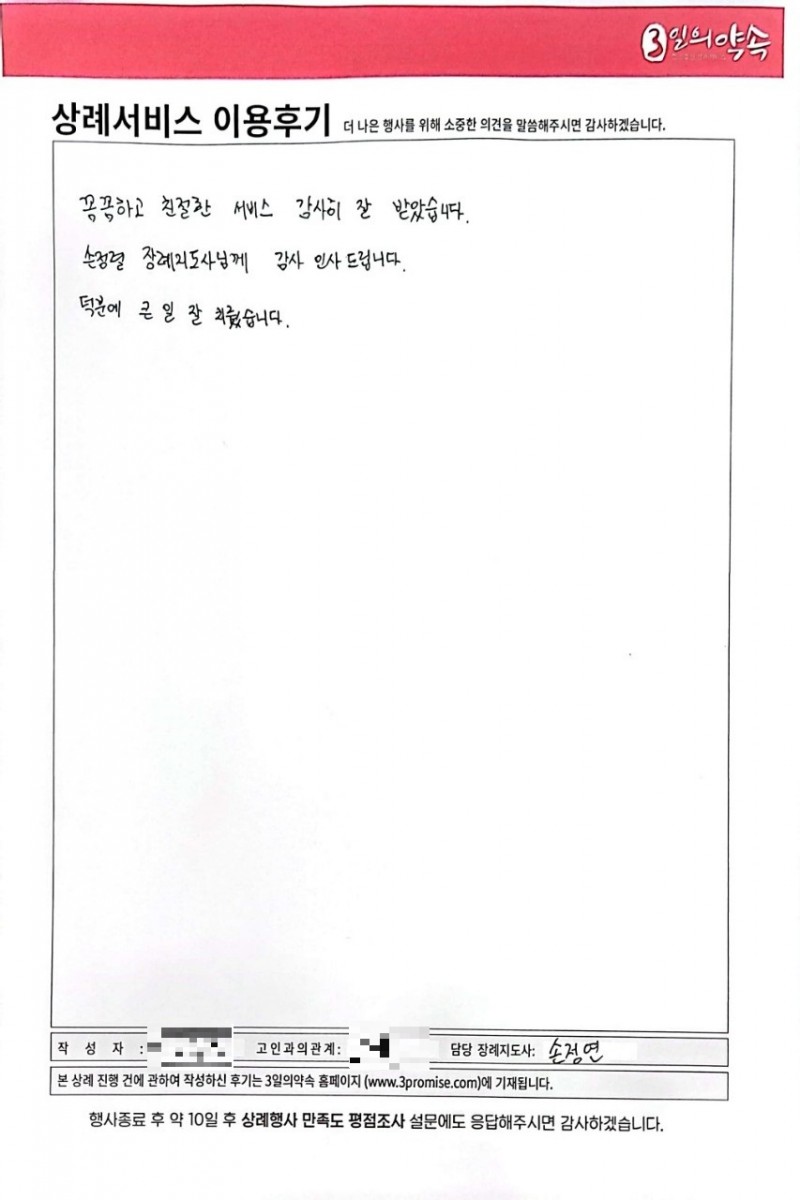 3일의약속
상례서비스 이용후기 더 나은 행사를 위해 소중한 의견을 말씀해주시면 감사하겠습니다.
꼼꼼하고 친절한 서비스 감사히 잘 받았습니다.
손정렬 장례지도사님께 감사 인사 드립니다.
덕분에 큰 일 잘 치뤘습니다.
작 성 자 : 고인과의관계: 담당 장례지도사: 손정연
본 상례 진행 건에 관하여 작성하신 후기는 3일의약속 홈페이지 (www.3promise.com)에 기재됩니다.
행사종료 후 약 10일 후 상례행사 만족도 평점조사 설문에도 응답해주시면 감사하겠습니다.